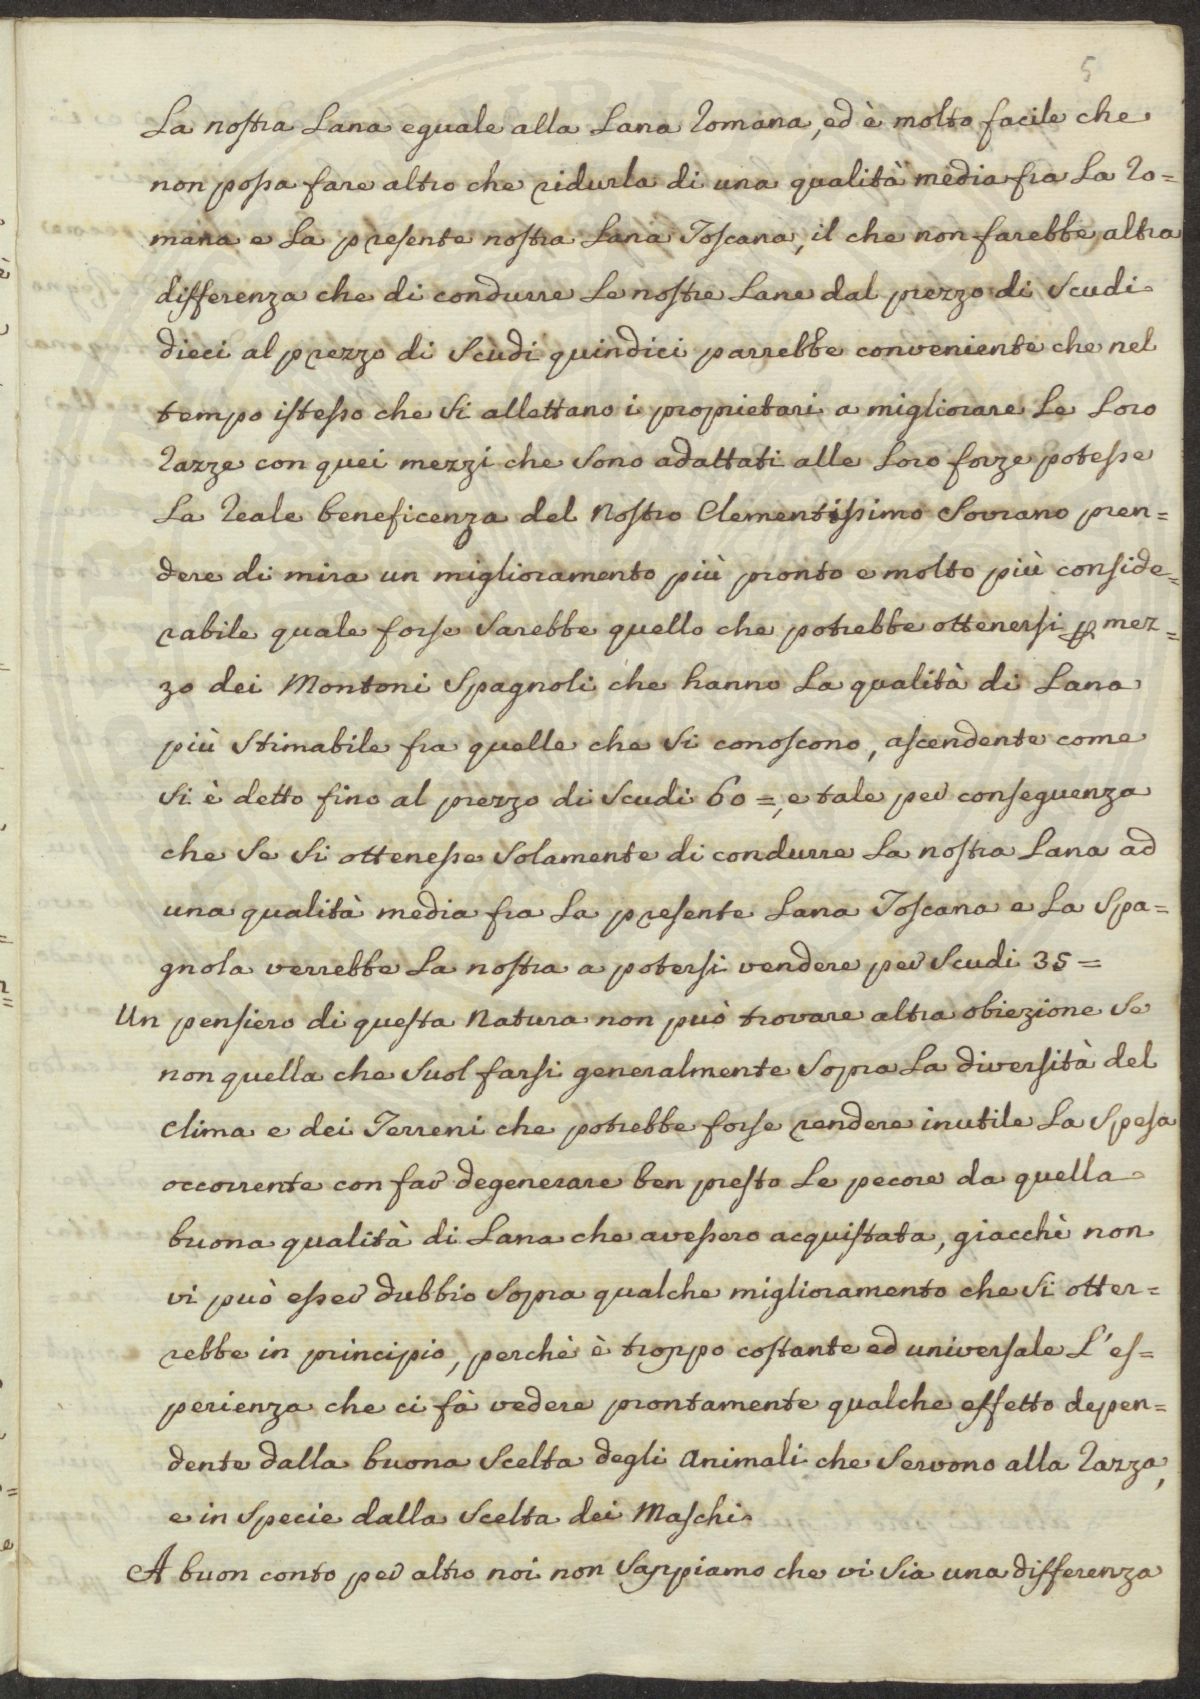 5
La nostra Lana eguale alla Lana Romana, ed è molto facile che
non possa fare altro che ridurla di una qualità media fra La Ro=
mana e La presente nostra Lana Toscana, il che non farebbe altra
differenza che di condurre Le nostre Lane dal prezzo di Scudi
dieci al prezzo di Scudi quindici parrebbe conveniente che nel
tempo istesso che si allettano i proprietari a migliorare Le Loro
Razze con quei mezzi che sono adattati alle Loro forze potesse
La Reale beneficenza del Nostro Clementissimo Sovrano pren=
dere di mira un miglioramento più pronto e molto più conside=
rabile quale forse sarebbe quello che potrebbe ottenersi p mez=
zo dei Montoni Spagnoli che hanno La qualità di Lana
più stimabile fra quelle che si conoscono, ascendente come
si è detto fino al prezzo di Scudi 60=, e tale per conseguenza
che se si ottenesse solamente di condurre La nostra Lana ad
una qualità media fra La presente Lana Toscana e La Spa=
gnola verrebbe La nostra a potersi vendere per Scudi 35=
Un pensiero di questa Natura non può trovare altra obiezione se
non quella che suol farsi generalmente sopra La diversità del
Clima e dei Terreni che potrebbe forse rendere inutile La Spesa
occorrente con far degenerare ben presto Le pecore da quella
buona qualità di Lana che avessero acquistata, giacchè non
vi può esser dubbio sopra qualche miglioramento che si otter=
rebbe in principio, perchè è troppo costante ed universale L'es=
perienza che ci fà vedere prontamente qualche effetto depen=
dente dalla buona Scelta degli Animali che servono alla Razza,
e in specie dalla Scelta dei Maschi.
A buon conto per altro noi non sappiamo che vi sia una differenza